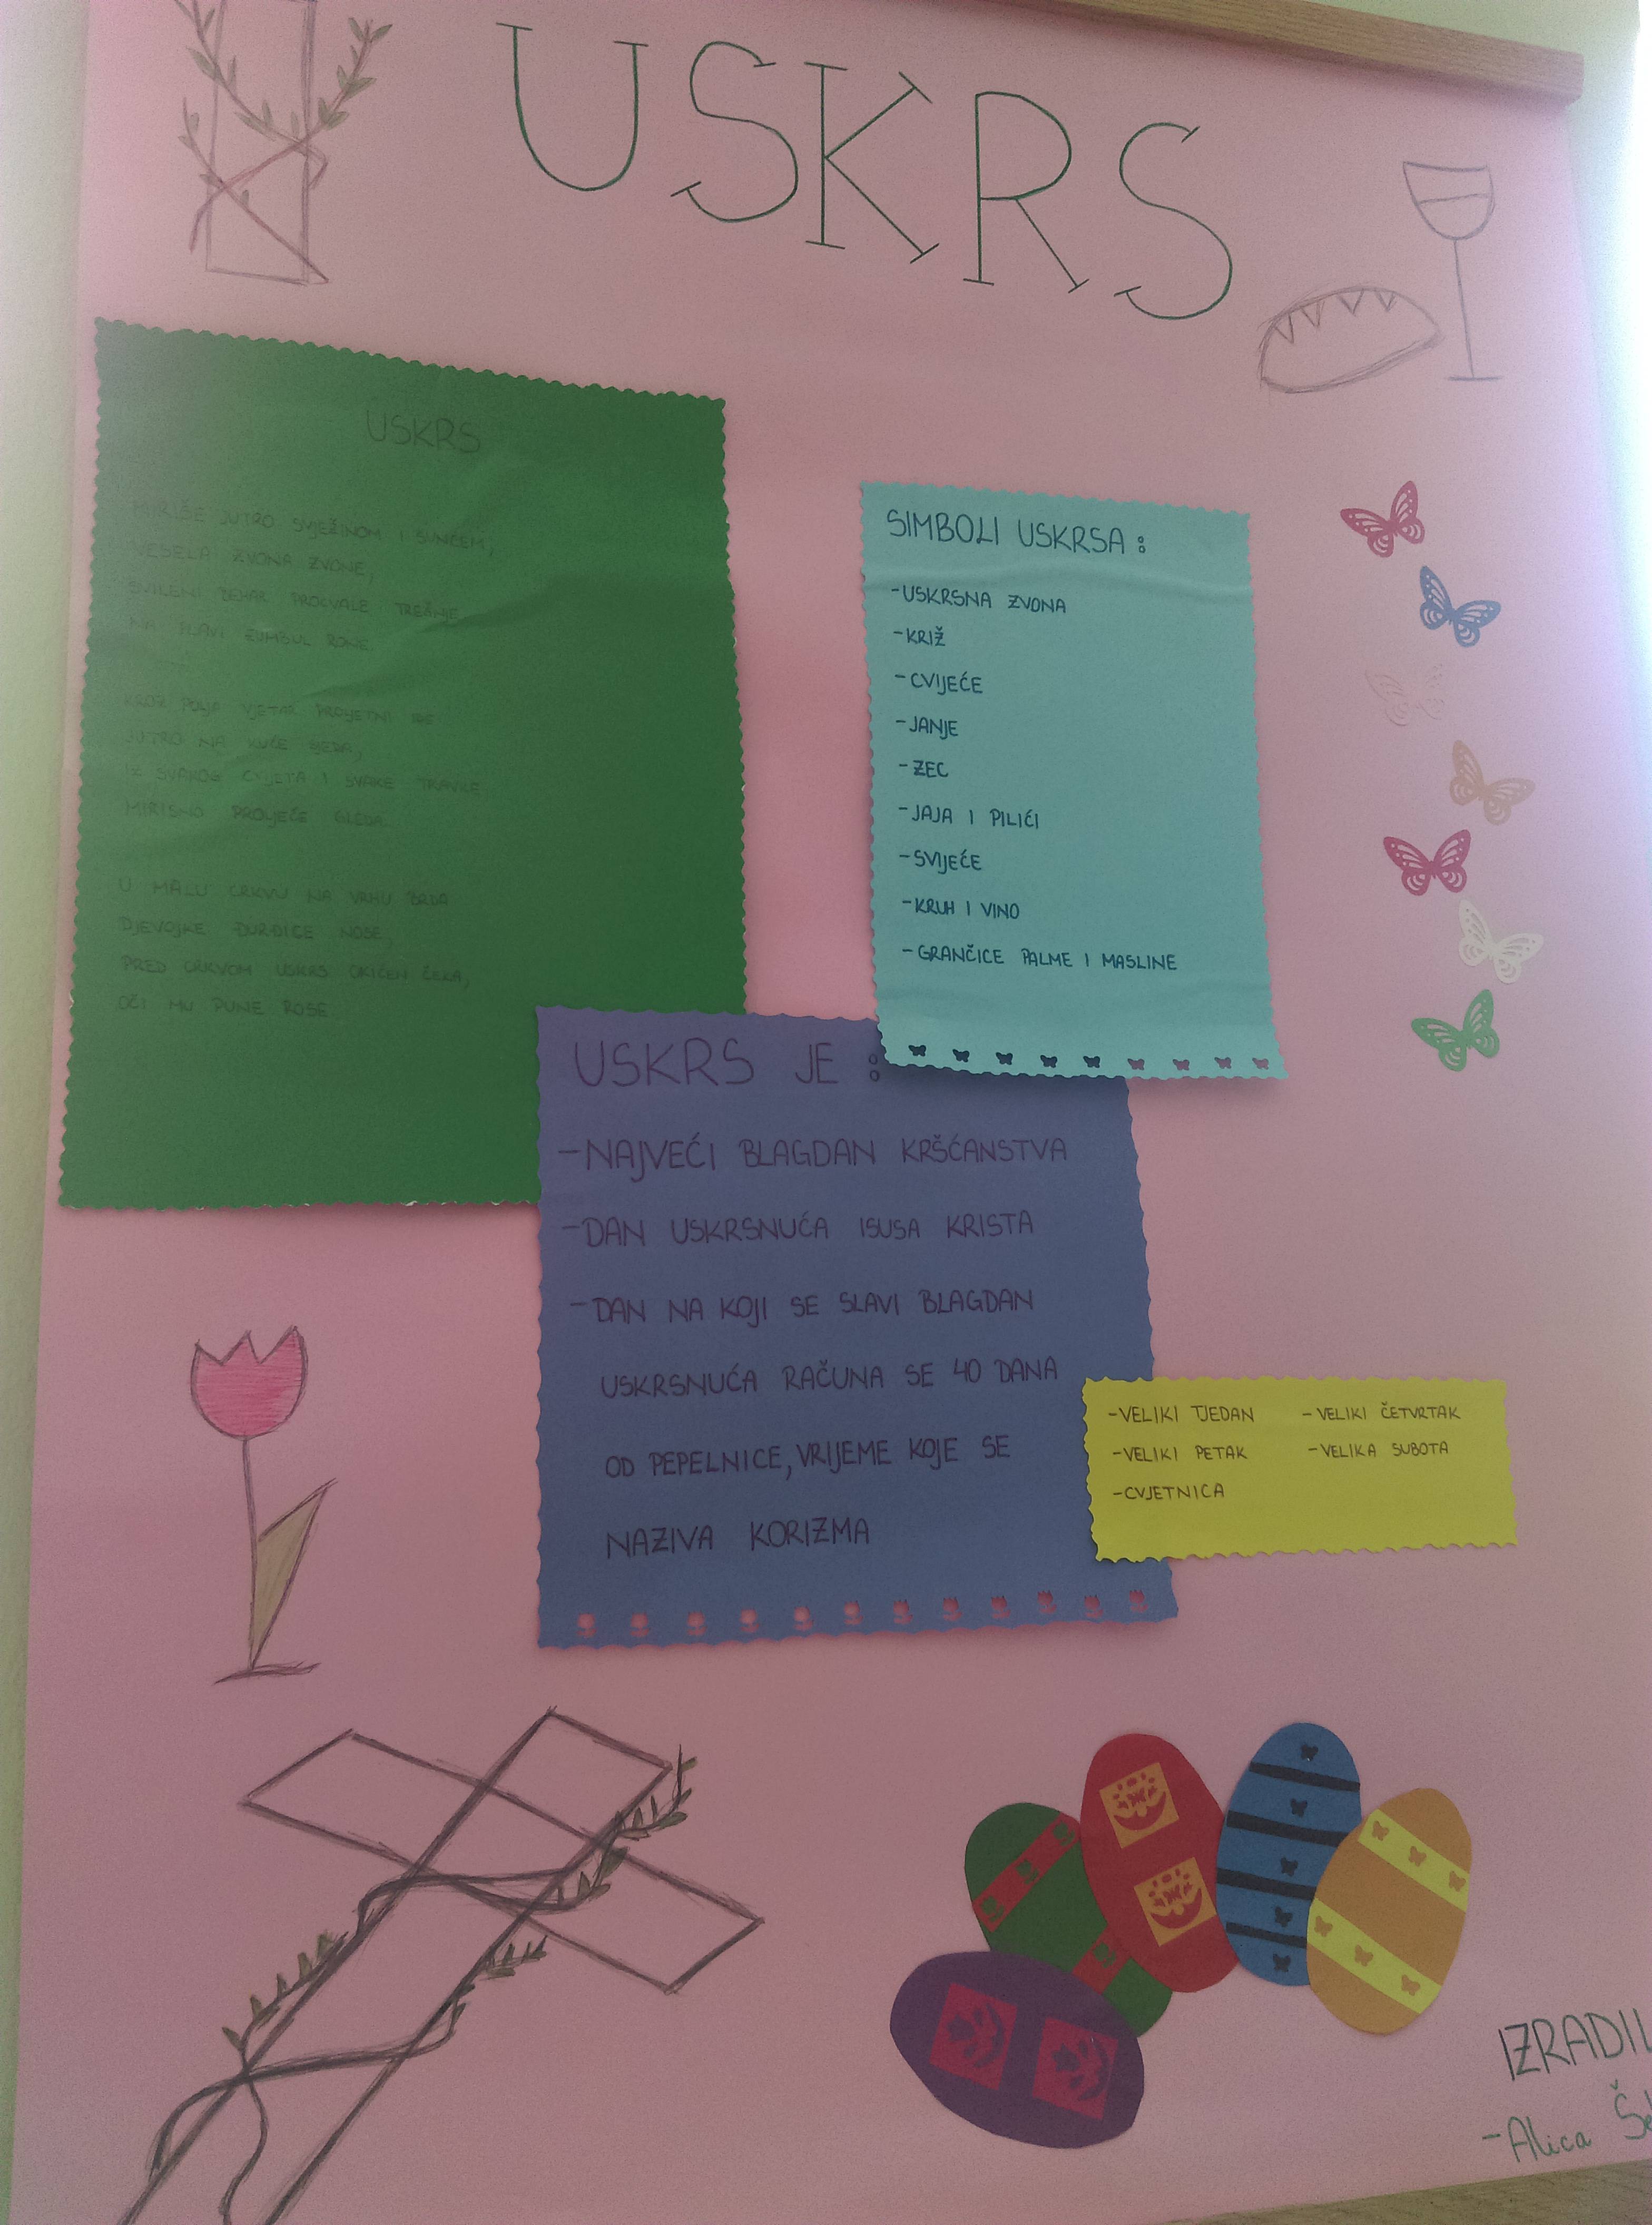 USKRS
USKRS
MIRIŠE JUTRO SVJEŽINOM I SUNCEM,
VESELA ZVONA ZVONE,
SVILENI BEHAR PROCVALE TREŠNJE
NA PLAVI ZUMBUL RONE.
KROZ POLJA VJETAR PROLJETNI IDE
JUTRO NA KUĆE SJEDA,
IZ SVAKOG CVIJETA I SVAKE TRAVKE
MIRISNO PROLJEĆE GLEDA.
U MALU CRKVU NA VRHU BRDA
DJEVOJKE ĐURĐICE NOSE,
PRED CRKVOM USKRS OKIĆEN ČEKA,
OČI MU PUNE ROSE.
SIMBOLI USKRSA:
-USKRSNA ZVONA
-KRIŽ
-CVIJEĆE
-JANJE
-ZEC
-JAJA I PILIĆI
-SVIJEĆE
-KRUH I VINO
-GRANČICE PALME I MASLINE
USKRS JE:
-NAJVEĆI BLAGDAN KRŠĆANSTVA
-DAN USKRSNUĆA ISUSA KRISTA
-DAN NA KOJI SE SLAVI BLAGDAN
USKRSNUĆA RAČUNA SE 40 DANA
OD PEPELNICE, VRIJEME KOJE SE
NAZIVA KORIZMA
-VELIKI TJEDAN
-VELIKI PETAK
-CVJETNICA
-VELIKI ČETVRTAK
-VELIKA SUBOTA
IZRADIL
-Alica